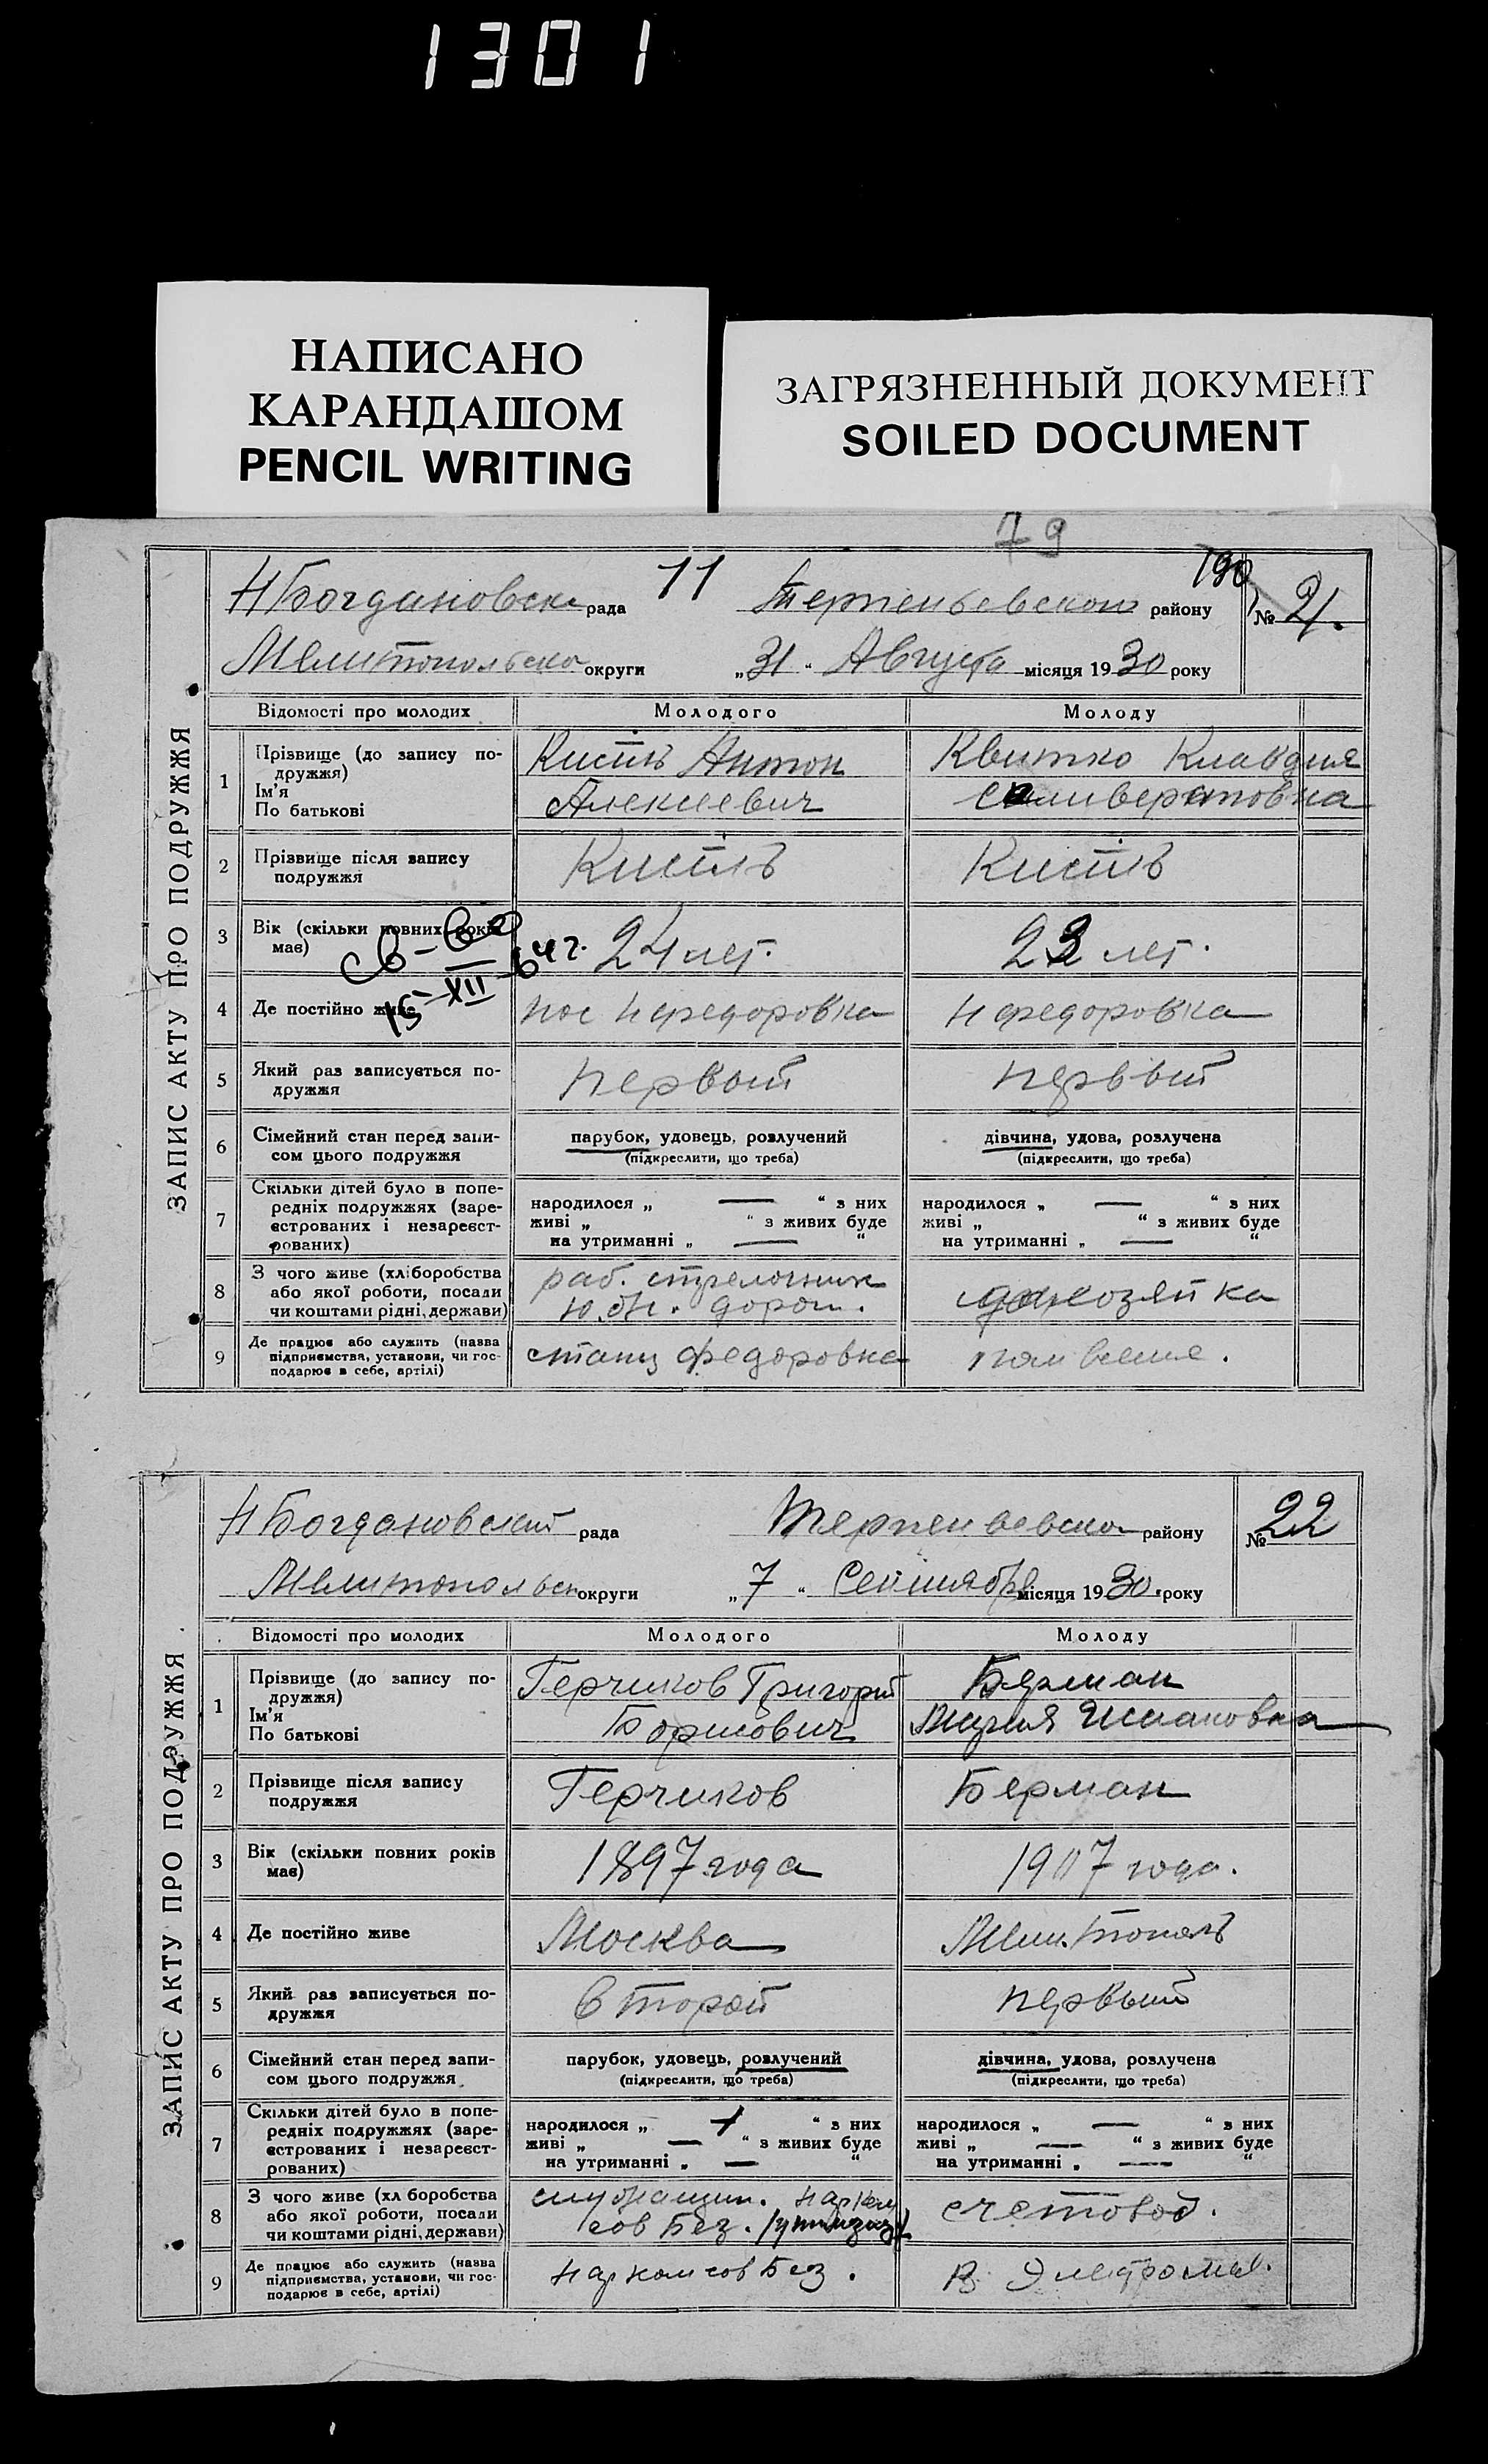 1301
НАПИСАНО
КАРАНДАШОМ
PENCIL WRITING
ЗАГРЯЗНЕННЫЙ ДОКУМЕНТ
SOILED DOCUMENT
79
ЗАПИС АКТУ ПРО ПОДРУЖЖЯ
НБогдановск рада 11 Терпеньевском району 190 № 21.
Мелитопольско округи „31“ Августа місяця 1930 року
Відомості про молодих Молодого Молоду
1 Прізвище (до запису по-
дружжя)
Ім'я
По батькові
Кистъ Антон
Алексеевич
Квитко Клавдия
Селиверстовна
2 Прізвище після запису
подружжя
Кистъ Кистъ
3 Вік (скільки повних років
має)
24 лет. 23 лет.
св-во
15-XII-64 г.
4 Де постійно живе
пос Нфедоровка Нфедоровка
5 Який раз записується по-
дружжя
первый первый
6 Сімейний стан перед запи-
сом цього подружжя
парубок, удовець, розлучений
(підкреслити, що треба)
дівчина, удова, розлучена
(підкреслити, що треба)
7 Скільки дітей було в попе-
редніх подружжях (заре-
єстрованих і незареєст-
рованих)
народилося „ — “ з них
живі „ “ з живих буде
на утриманні „ — “
народилося „ — “ з них
живі „ “ з живих буде
на утриманні „ — “
8 З чого живе (хліборобства
або якої роботи, посади
чи коштами рідні, держави)
раб. стрелочник
дорог.
домхозяйка
9 Де працює або служить (назва
підприємства, установи, чи гос-
подарює в себе, артілі)
станц федоровка
ЗАПИС АКТУ ПРО ПОДРУЖЖЯ
НБогдановский рада Терпеньевском району № 22
Мелитопольск округи „7“ Сентября місяця 1930 року
Відомості про молодих Молодого Молоду
1 Прізвище (до запису по-
дружжя)
Ім'я
По батькові
Герчиков Григорий
Борисович
Берман
Мария
2 Прізвище після запису
подружжя
Герчиков Берман
3 Вік (скільки повних років
має)
1897 года 1907 года.
4 Де постійно живе
Москва Мелитополь
5 Який раз записується по-
дружжя
второй первый
6 Сімейний стан перед запи-
сом цього подружжя
парубок, удовець, розлучений
(підкреслити, що треба)
дівчина, удова, розлучена
(підкреслити, що треба)
7 Скільки дітей було в попе-
редніх подружжях (заре-
єстрованих і незареєст-
рованих)
народилося „ “ з них
живі „ — “ з живих буде
на утриманні „ — “
народилося „ — “ з них
живі „ — “ з живих буде
на утриманні „ — “
8 З чого живе (хл боробства
або якої роботи, посади
чи коштами рідні, держави)
служащий. Нарком
сов Без.
счетовод.
9 Де працює або служить (назва
підприємства, установи, чи гос-
подарює в себе, артілі)
Наркомсов Без.